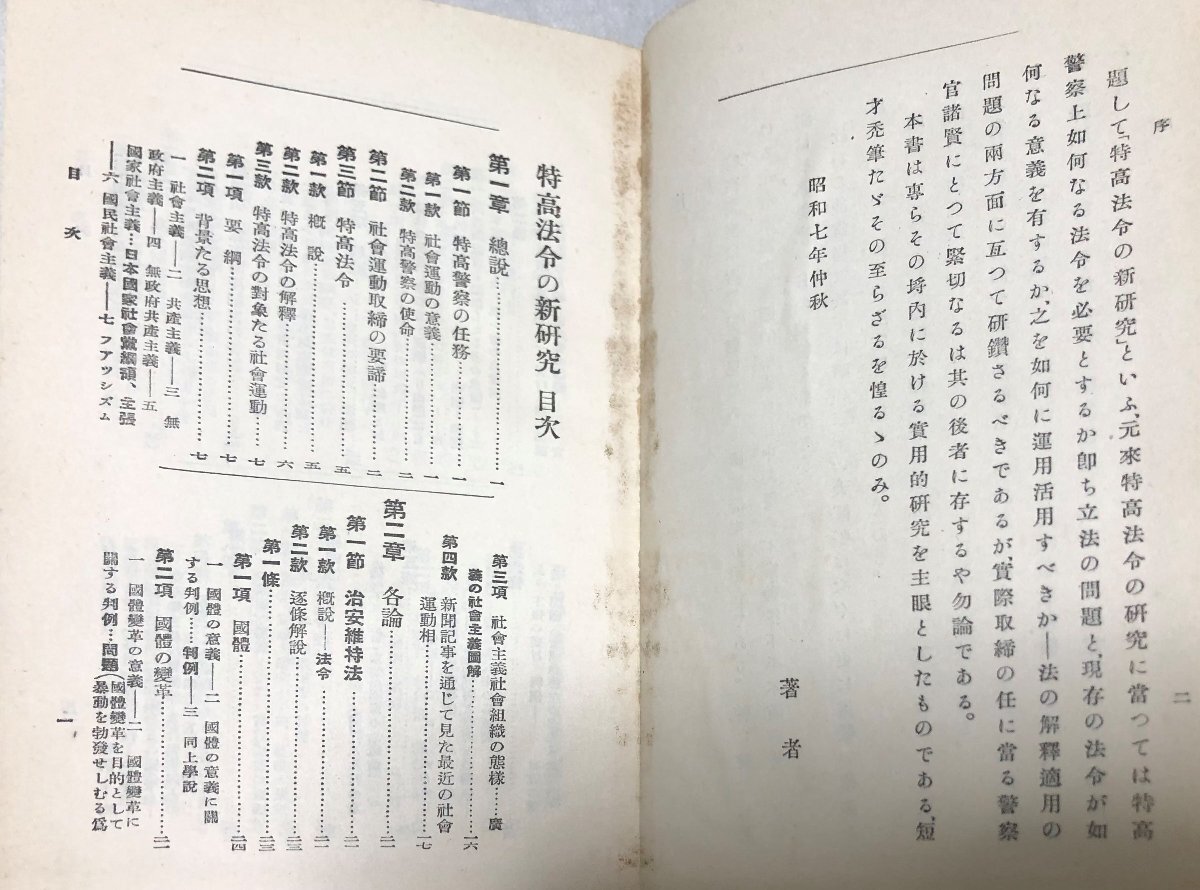 序
二
題して「特高法令の新研究」といふ、元來特高法令の研究に當つては特高
警察上如何なる法令を必要とするか卽ち立法の問題と、現存の法令が如
何なる意義を有するか、之を如何に運用活用すべきか―法の解釋適用の
問題の兩方面に亙つて硏鑽さるべきであるが、實際取締の任に當る警察
官諸賢にとつて緊切なるは其の後者に存するや勿論である。
本書は專らその埓內に於ける實用的研究を主眼としたものである、短
才禿筆たゞその至らざるを惶るゝのみ。
昭和七年仲秋
著者
特高法令の新研究 目次
第一章 總說……一
第一節 特高警察の任務……一
第一款 社會運動の意義……一
第二款 特高警察の使命……二
第二節 社會運動取締の要諦……二
第三節 特高法令……五
第一款 槪說……五
第二款 特高法令の解釋……六
第三款 特高法令の對象たる社會運動……七
第一項 要綱……七
第二項 背景たる思想……七
一 社會主義――二 共產主義――三 無
政府主義――四 無政府共產主義――五
國家社會主義…日本國家社會黨綱領、主張
――六 國民社會主義――七 フアッシズム
第三項 社會主義社會組織の態樣…廣
義の社會主義圖解……一六
第四款 新聞記事を通じて見た最近の社會
運動相……一七
第二章 各論……二一
第一節 治安維持法……二一
第一款 槪說――法令……二一
第二款 逐條解說……二三
第一條……二三
第一項 國體……二四
一 國體の意義――二 國體の意義に關
する判例……判例――三 同上學說
第二項 國體の變革……三一
一 國體變革の意義――二 國體變革に
關する判例…問題(國體變革を目的として
暴動を勃發せしむる爲
目次
一